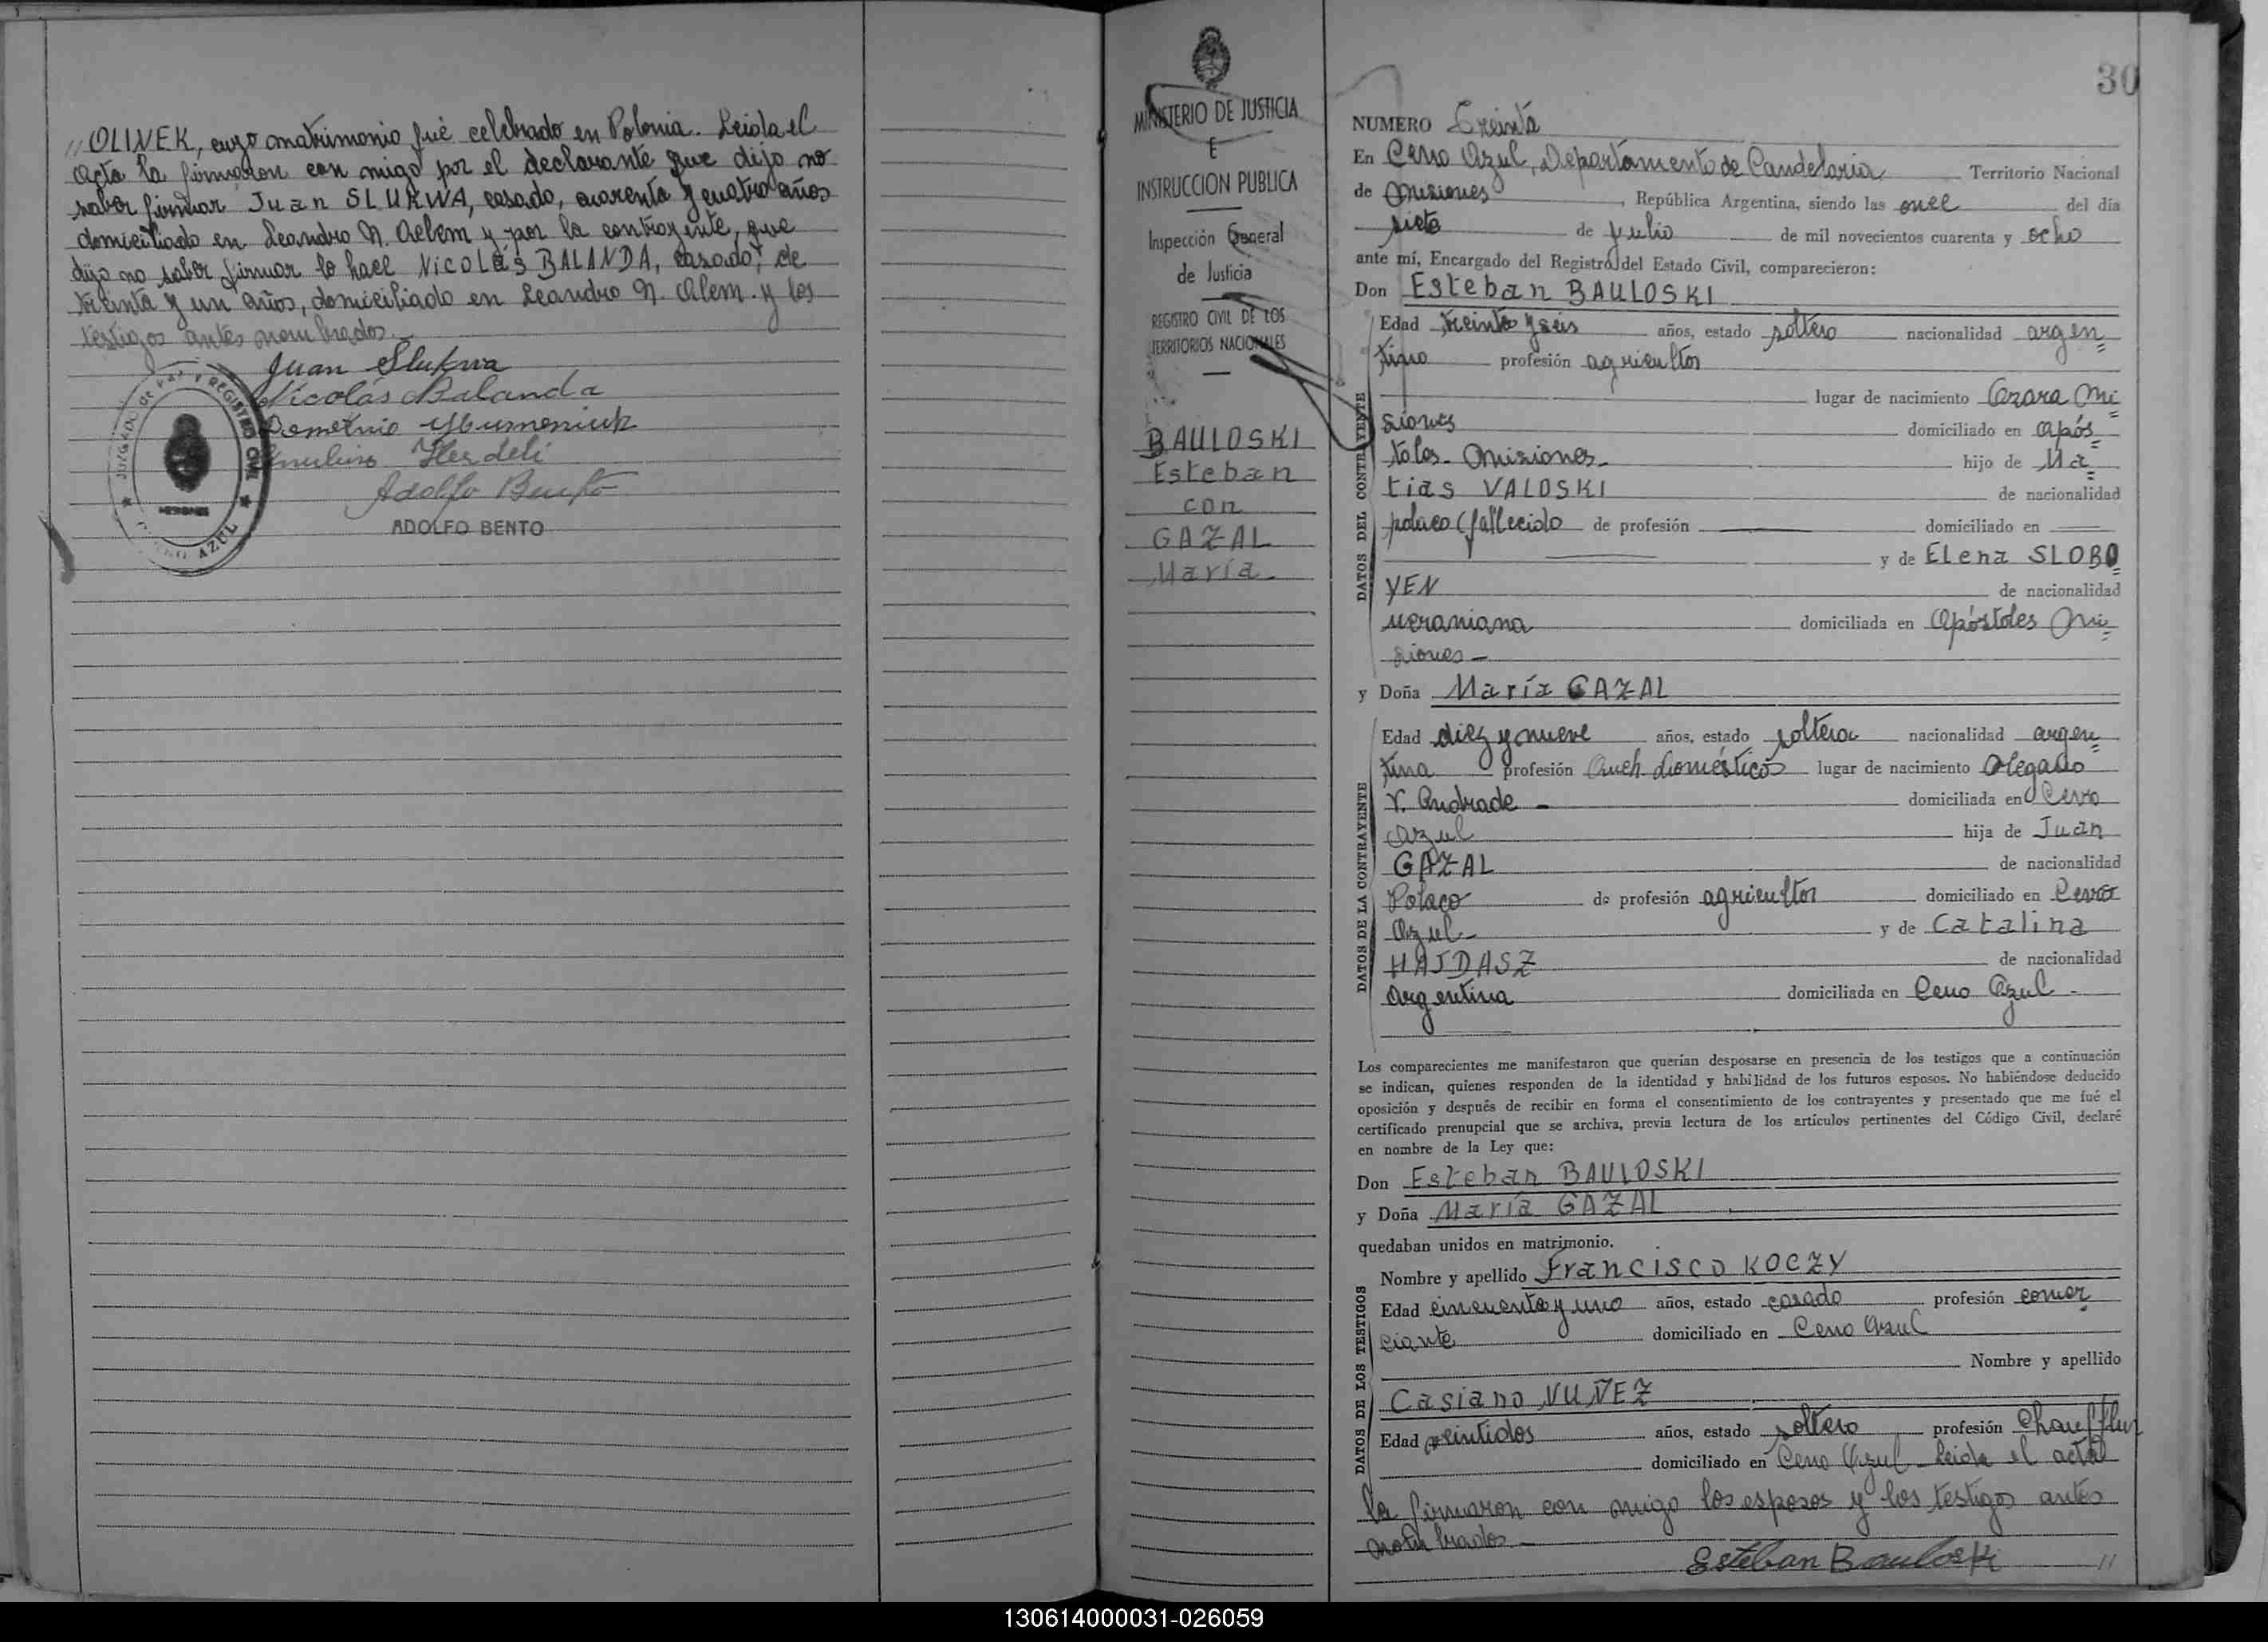 "OLINEK, cuyo matrimonio fué celebrado en Polonia. Leida el
acta la firmaron con migo por el declarante que dijo no
saber firmar Juan SLUKWA, casado, cuarenta y cuatro años
domiciliado en Leandro N. Aelem y por la contrayente, que
dijo no saber firmar lo hace NicoLás BALANDA, casado, de
treinta y un años, domiciliado en Leandro N. Alem. y los
testigos antes nombrados.
Juan Slukwa
Nicolás Balanda
Adolfo Bento
ADOLFO BENTO
JUZGADO de PAZ Y REGISTRO CIVIL
CERRO AZUL
MISIONES
MINISTERIO DE JUSTICIA
E
INSTRUCCION PUBLICA
Inspección General
de Justicia
REGISTRO CIVIL DE LOS
TERRITORIOS NACIONALES
BAULOSKI
Esteban
con
GAZAL
María.
30
NUMERO Treinta
En Cerro Azul, Departamento de Candelaria Territorio Nacional
de Misiones, República Argentina, siendo las once del día
siete de julio de mil novecientos cuarenta y ocho
ante mí, Encargado del Registro del Estado Civil, comparecieron:
Don Esteban BAULOSKI
DATOS DEL CONTRAYENTE
Edad treinta y seis años, estado soltero nacionalidad argen=
tino profesión agricultor
lugar de nacimiento Azara Mi=
siones domiciliado en Após=
toles - Misiones. hijo de Ma=
tias VALOSKI de nacionalidad
polaco (fallecido de profesión domiciliado en
y de ELena SLOBO=
YEN de nacionalidad
ucraniana domiciliada en Apóstoles Mi=
siones -
y Doña María GAZAL
DATOS DE LA CONTRAYENTE
Edad diez y nueve años, estado soltera nacionalidad argen=
tina profesión Queh. domésticos lugar de nacimiento Olegario
V. Andrade - domiciliada en Cerro
Azul hija de Juan
GAZAL de nacionalidad
Polaco de profesión agricultor domiciliado en Cerro
Azul- y de Catalina
HAJDASZ de nacionalidad
Argentina domiciliada en Cerro Azul -
Los comparecientes me manifestaron que querían desposarse en presencia de los testigos que a continuación
se indican, quienes responden de la identidad y habilidad de los futuros esposos. No habiéndose deducido
oposición y después de recibir en forma el consentimiento de los contrayentes y presentado que me fué el
certificado prenupcial que se archiva, previa lectura de los artículos pertinentes del Código Civil, declaré
en nombre de la Ley que:
Don Esteban BAULOSKI
y Doña María GAZAL
quedaban unidos en matrimonio.
DATOS DE LOS TESTIGOS
Nombre y apellido Francisco KOCZY
Edad cincuenta y uno años, estado casado profesión comer=
ciante domiciliado en Cerro Azul
Nombre y apellido
Casiano NUÑEZ
Edad veintidos años, estado soltero profesión Chauffeur
domiciliado en Cerro Azul - Leida el acta
la firmaron con migo los esposos y los testigos antes
nombrados -
Esteban Bauloski "
130614000031-026059